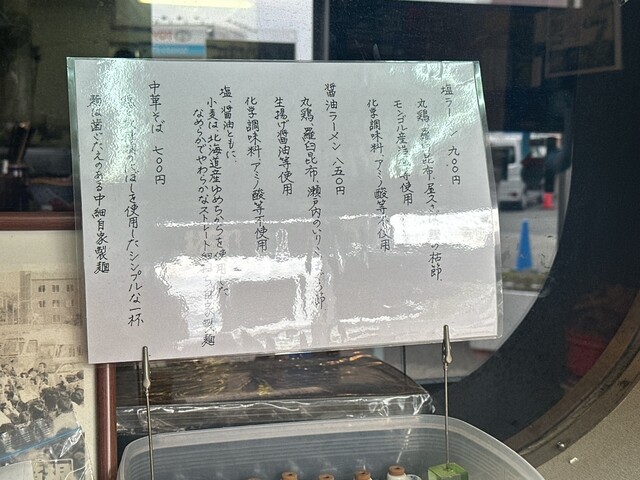 塩ラーメン 九〇〇円
丸鶏、羅臼昆布、屋久さば枯節
モンゴル産 等使用
化学調味料、アミノ酸等不使用
醤油ラーメン 八五〇円
丸鶏、羅臼昆布、瀬戸内のいりこ 節
生揚げ醤油等使用
化学調味料、アミノ酸等不使用
塩、醤油ともに、
小麦は、北海道産ゆめちからを使用した
なめらかでやわらかなストレート細 製麺
中華そば 七〇〇円
煮干しを使用したシンプルな一杯
麺は歯ごたえのある中細自家製麺